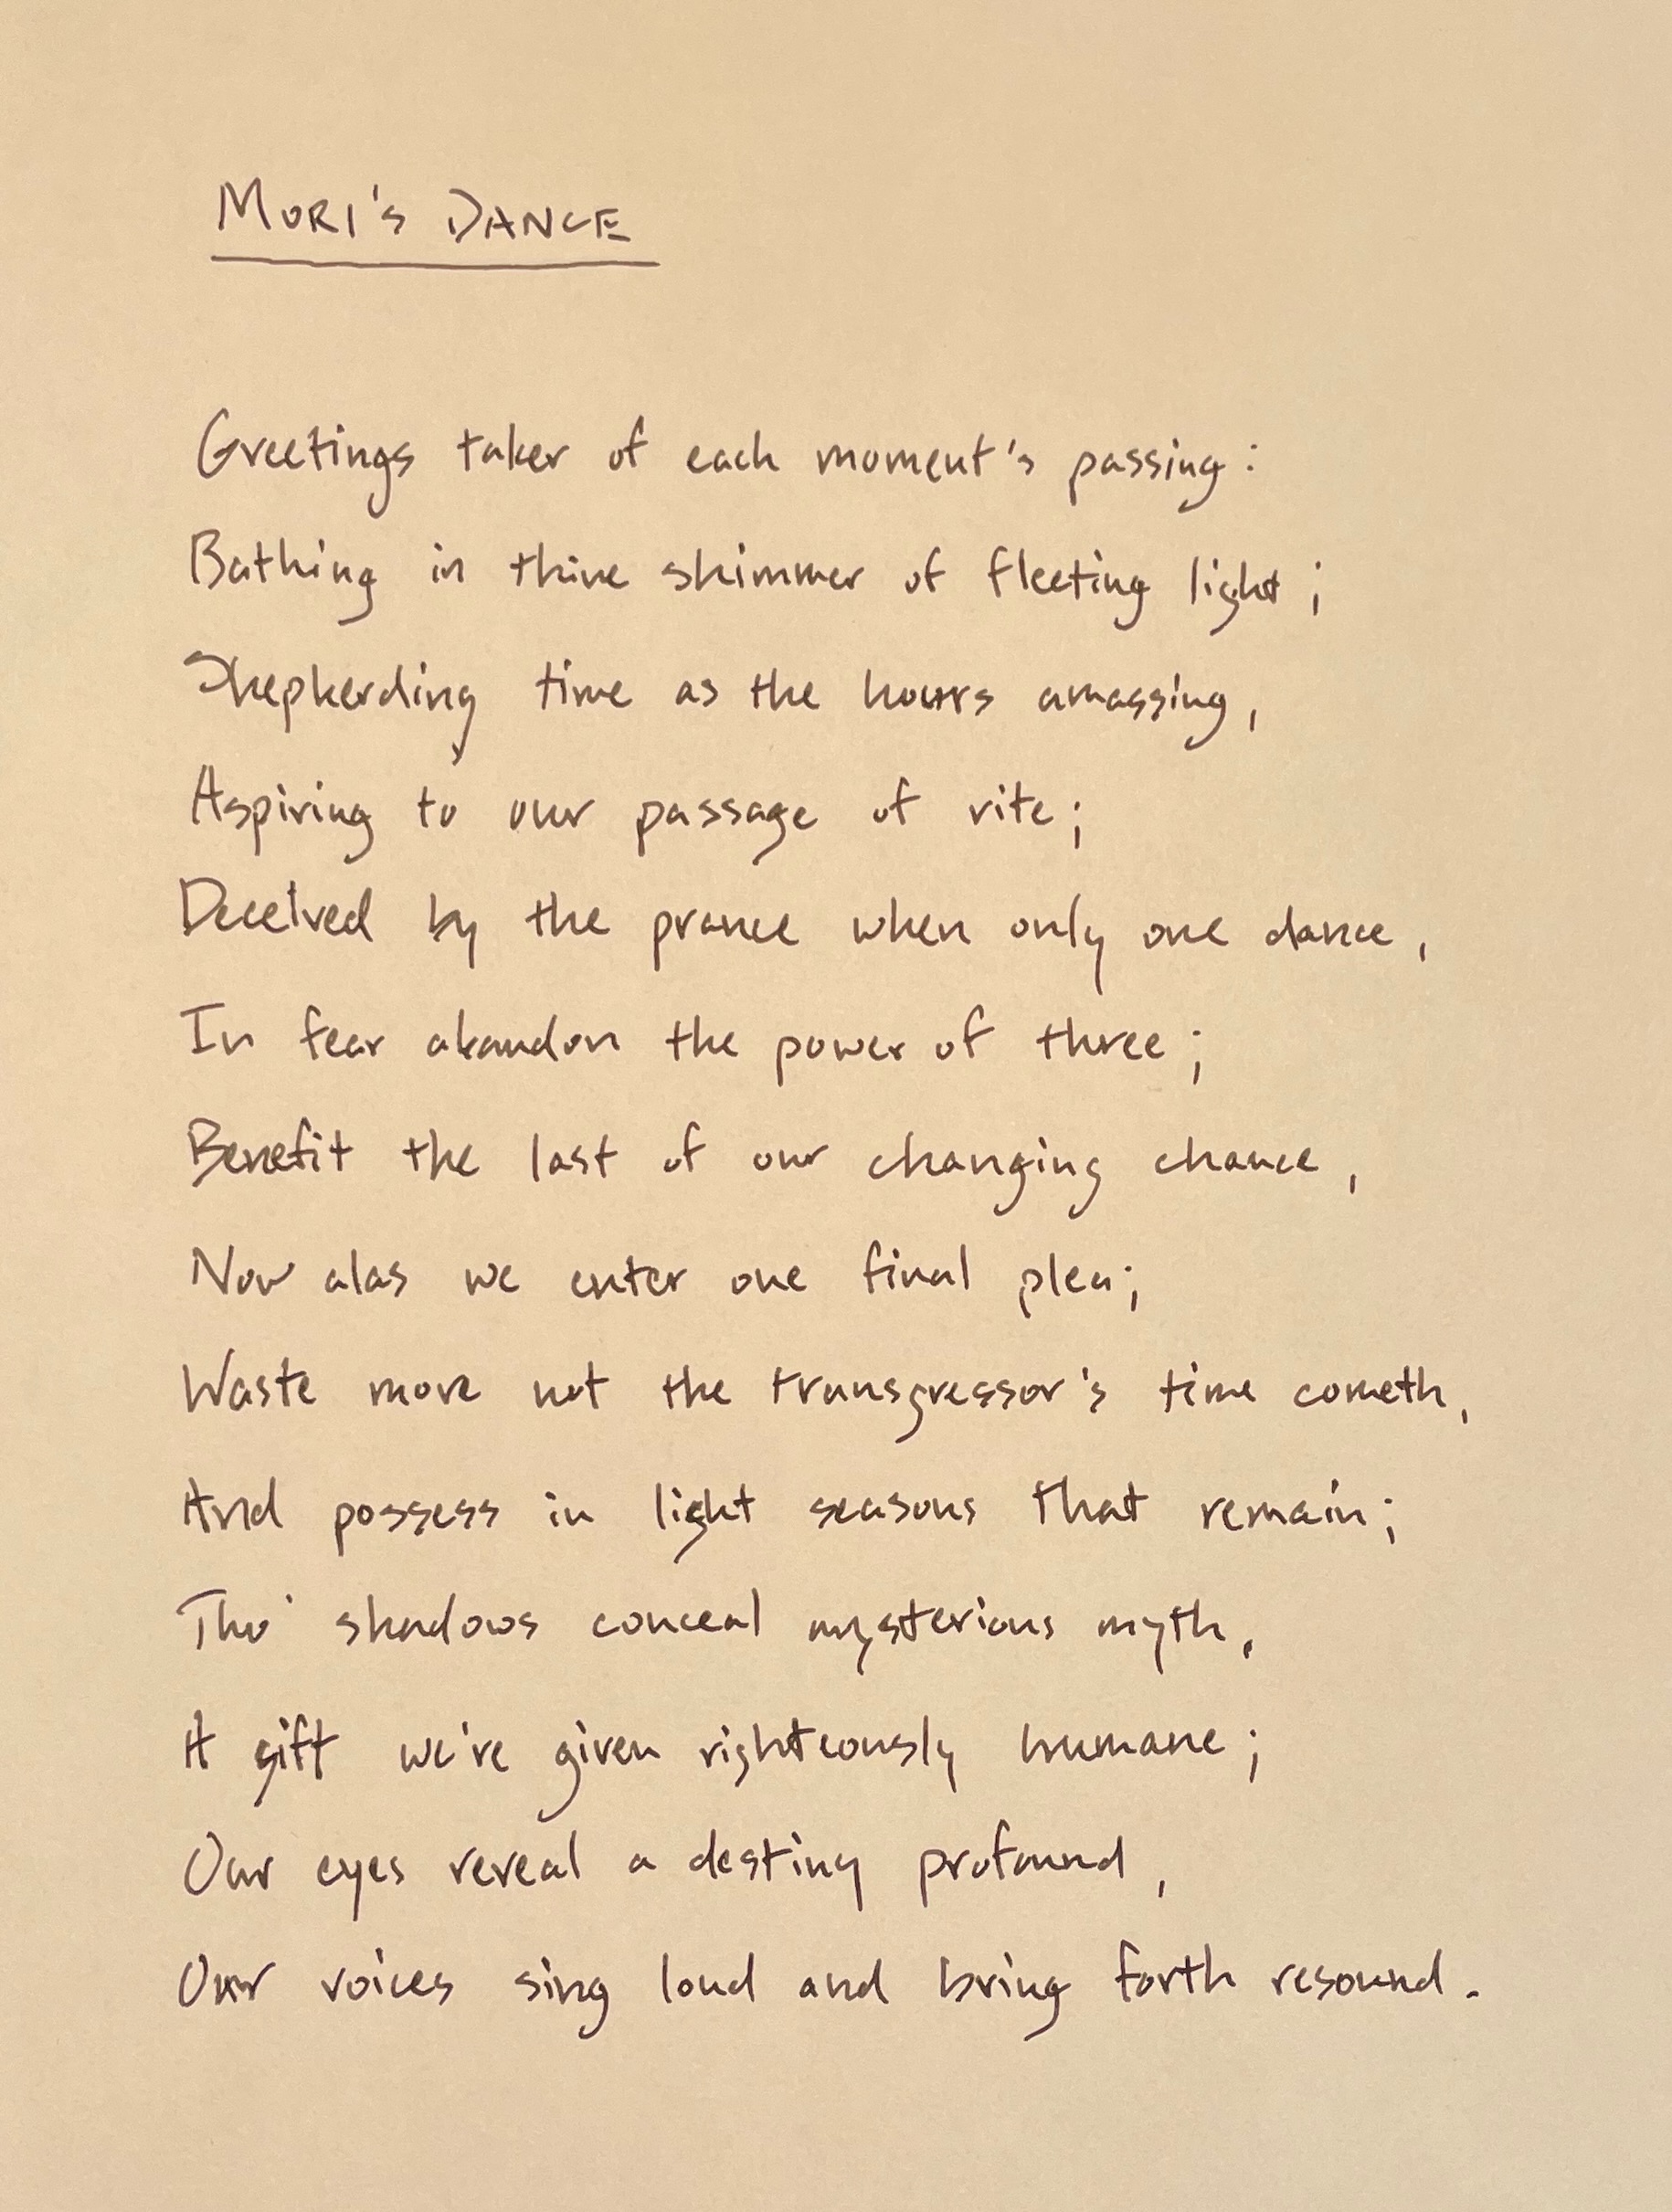 MORI'S DANCE
Greetings taker of each moment's passing:
Bathing in thine shimmer of fleeting light;
Shepherding time as the hours amassing,
Aspiring to our passage of rite;
Deceived by the prance when only one dance,
In fear abandon the power of three;
Benefit the last of our changing chance,
Now alas we enter one final plea;
Waste more not the transgressor's time cometh,
And possess in light seasons that remain;
Tho' shadows conceal mysterious myth,
A gift we're given righteously humane;
Our eyes reveal a destiny profound,
Our voices sing loud and bring forth resound.